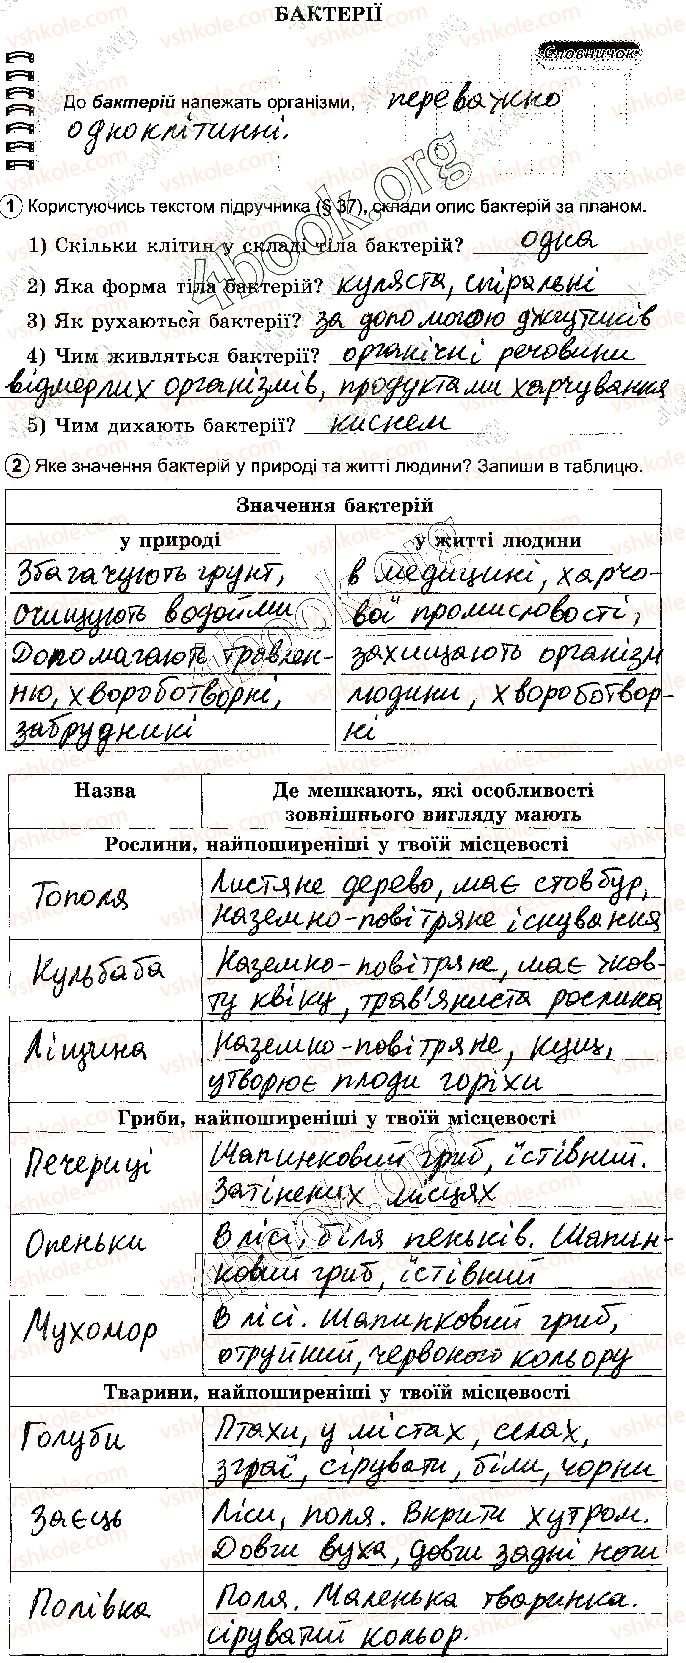 БАКТЕРІЇ
Словничок
До бактерій належать організми, переважно
одноклітинні.
1 Користуючись текстом підручника (§ 37), склади опис бактерій за планом.
1) Скільки клітин у складі тіла бактерій? одна
2) Яка форма тіла бактерій? куляста, спіральні
3) Як рухаються бактерії? за допомогою джгутиків
4) Чим живляться бактерії? органічні речовини
відмерлих організмів, продуктами харчування
5) Чим дихають бактерії? киснем
2 Яке значення бактерій у природі та житті людини? Запиши в таблицю.
Значення бактерій
у природі у житті людини
Збагачують грунт, в медицині, харчо-
очищують водойми вої промисловості,
Допомагають травлен- захищають організм
ню, хвороботворні, людини, хвороботвор-
забрудникі ні
Назва Де мешкають, які особливості
зовнішнього вигляду мають
Рослини, найпоширеніші у твоїй місцевості
Тополя Листяне дерево, має стовбур,
наземно-повітряне існування
Кульбаба Наземно-повітряне, має жов-
ту квіку, трав'яниста рослина
Ліщина Наземно-повітряне, кущ,
утворює плоди горіхи
Гриби, найпоширеніші у твоїй місцевості
Печериці Шапинковий гриб, їстівний.
Затінених місцях
Опеньки В лісі, біля пеньків. Шапин-
ковий гриб, їстівний
Мухомор В лісі. Шапинковий гриб,
отруйний, червоного кольору
Тварини, найпоширеніші у твоїй місцевості
Голуби Птахи, у містах, селах,
зграї, сірувати, біли, чорни
Заєць Ліси, поля. Вкрити хутром.
Довги вуха, довги задні ноги
Полівка Поля. Маленька тваринка.
сіруватий кольор.